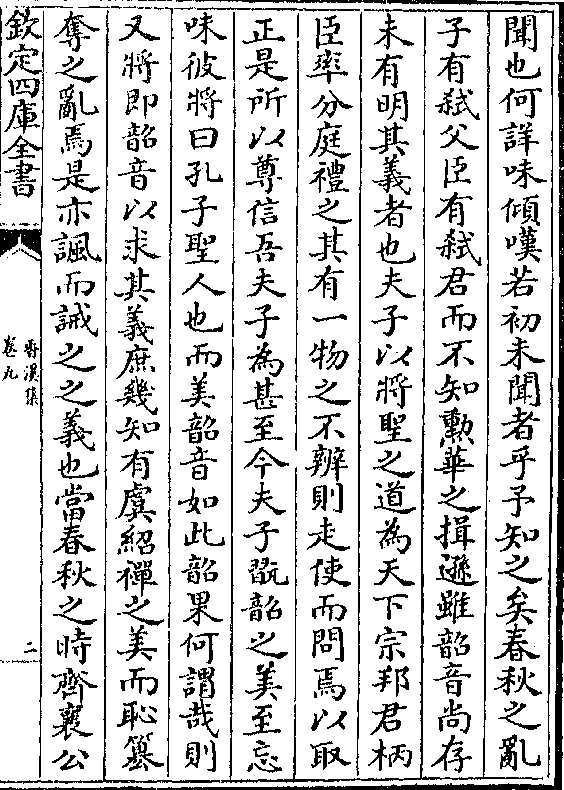 聞也何詳味傾嘆若初未聞者乎予知之矣春秋之亂
子有弑父臣有弑君而不知勲華之揖遜雖韶音尚存
未有明其義者也夫子以將聖之道為天下宗邦君柄
臣率分庭禮之其有一物之不辨則走使而問焉以取
正是所以尊信吾夫子為甚至今夫子翫韶之美至忘
味彼將曰孔子聖人也而美韶音如此韶果何謂哉則
又將即韶音以求其義庶幾知有虞紹禪之美而恥篡
奪之亂焉是亦諷而誡之之義也當春秋之時齊襄公
欽定四庫全書
香溪集
卷九
二